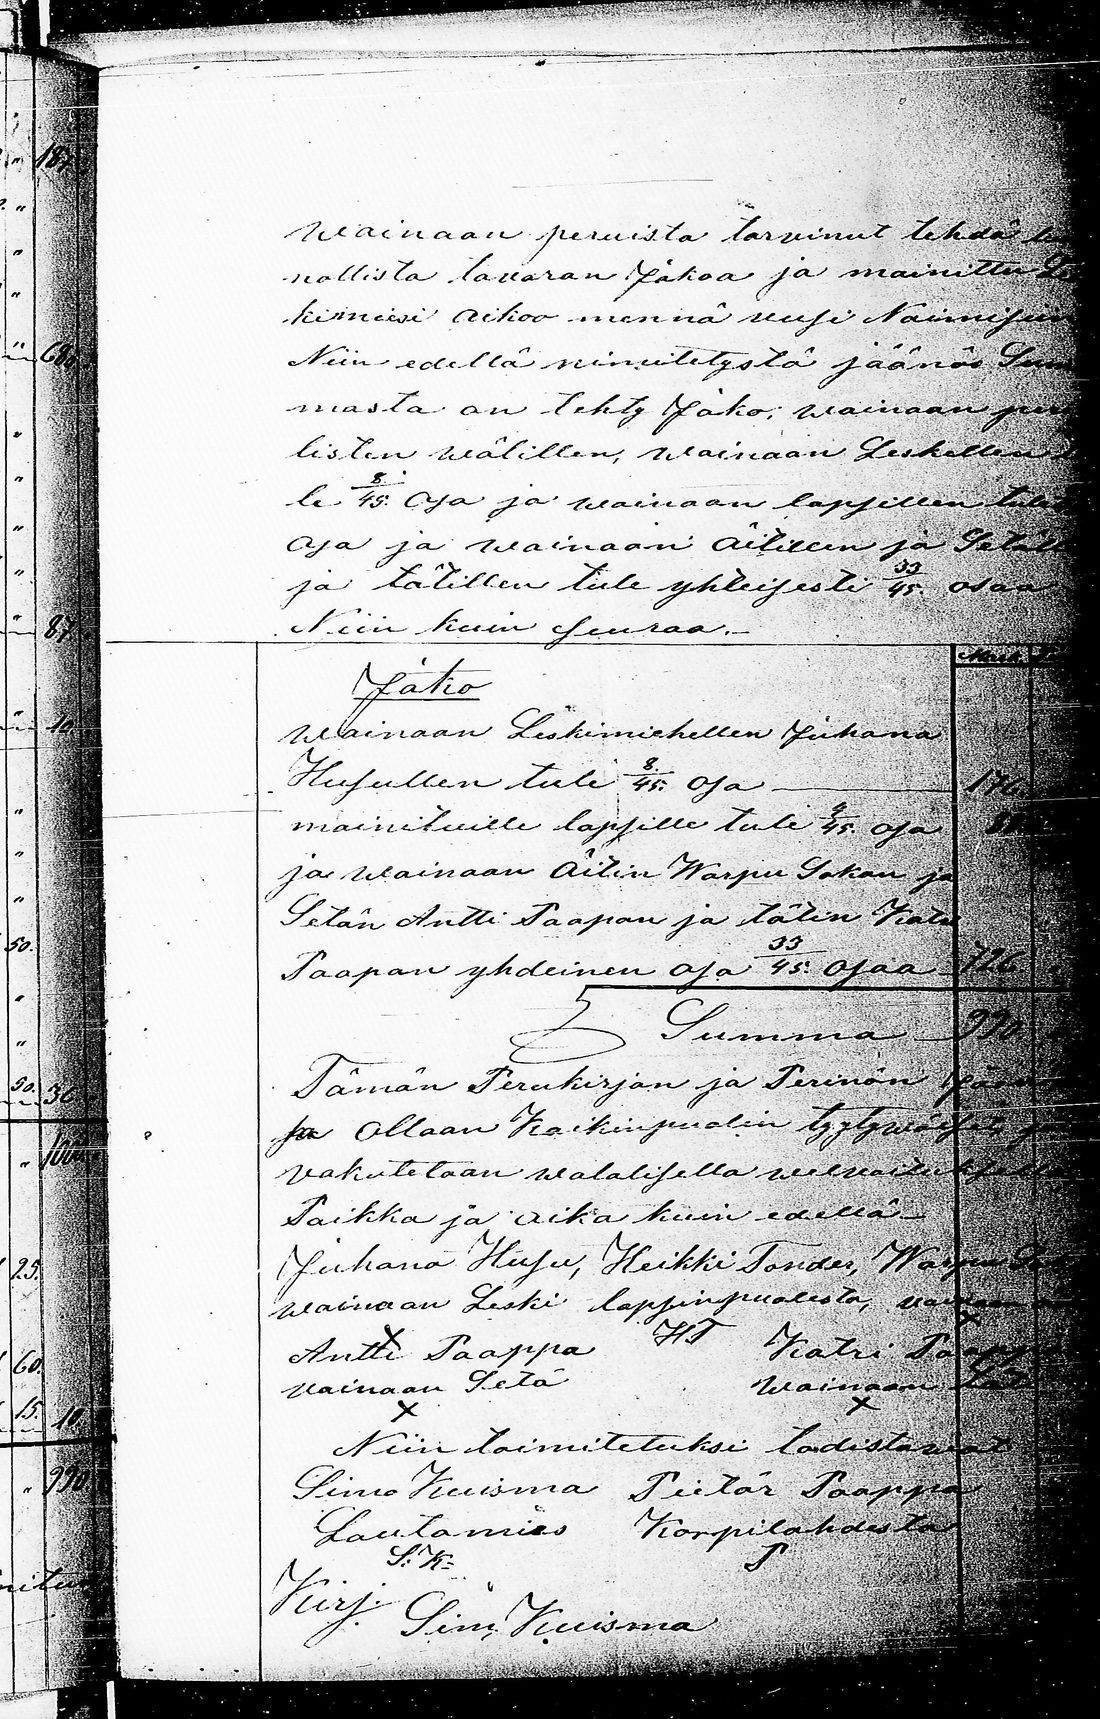 wainaan peruista tarvinut tehdä
nollista tavaran Jakoa ja mainittu
kimiesi aikoo mennä uusi Naimisiin
Niin edellä nimitetystä jäänös Sum
masta an tehty Jako, wainaan per
listen wälillen, wainaan Leskellen
le 8/45. Osa ja wainaan lapsillen tulee
Osa ja wainaan Äitillen ja Setäll
ja tätillen tule yhteisesti 33/45. osaa
Niin kuin seuraa.-
Mark.
Jako
wainaan Leskimiehellen Juhana
Husullen tule 8/45. Osa 176.
mainituille lapsille tule 4/45. Osa 88
ja wainaan Äitin Warpu Sokan ja
Setän Antti Paapan ja tätin Katri
Paapan yhdeinen osa 33/45. Osaa 726
Summa 990.
Tämän Perukirjan ja Perinön
ja Ollaan Kaikinpuolin tyytywäiset, ja
vakutetaan walalisella welvaituksella
Paikka ja aika kuin edellä-
Juhana Husu, Heikki Tonder, Warpu
wainaan Leski lapsinpuolesta,
Antti Paappa HT Katri Paappa
wainaan Setä wainaan Täti
X X
Niin toimitetuksi todistawat
Simo Kuisma Pietär Paappa
Lautamies Korpilahdesta
S. K. P
Kirj. Simo Kuisma
187.
680.
87.
10.
50.
50. 36
1000
25.
60.
15. 10
990.